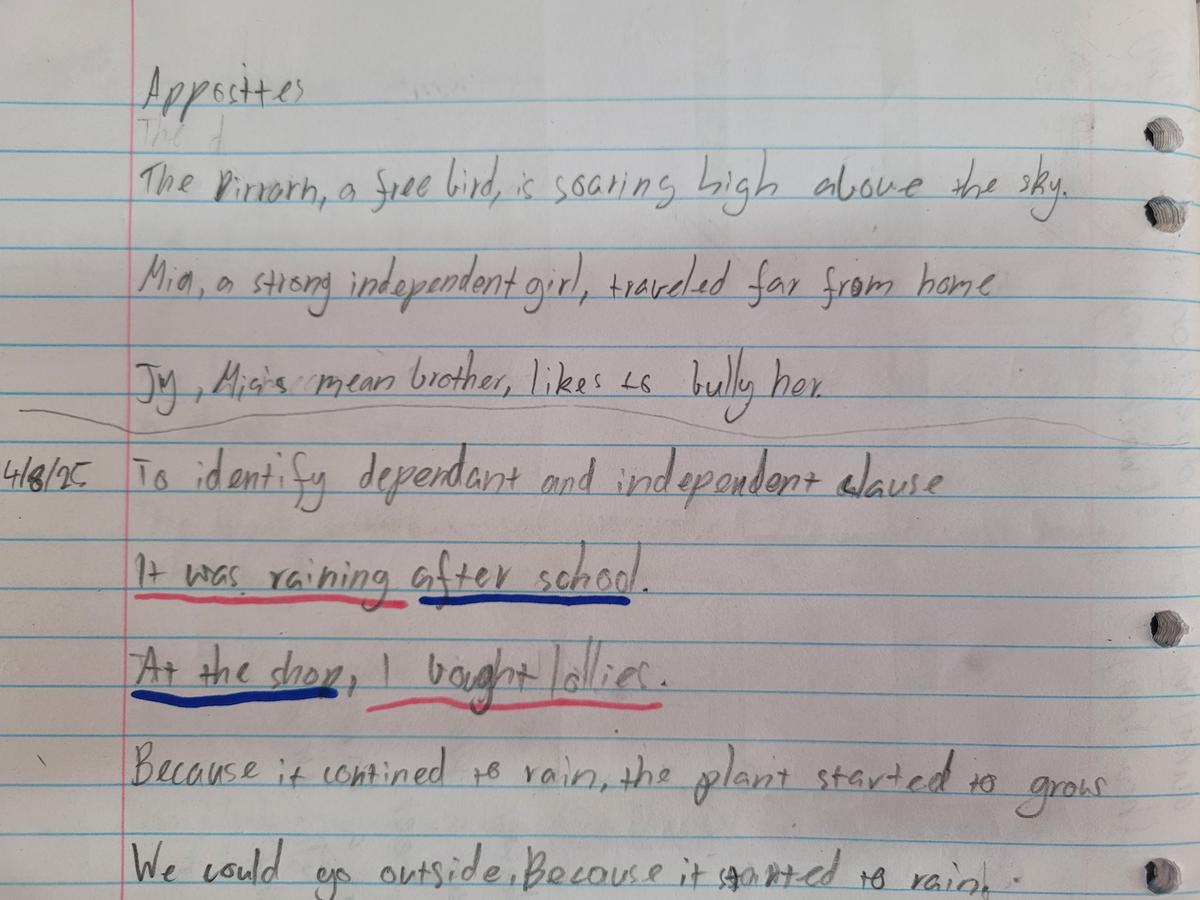 Apposittes
The
The Dirrarn, a free bird, is soaring high above the sky.
Mia, a strong independent girl, traveled far from home
Jy, Mia's mean brother, likes to bully her.
4/8/25 To identify dependant and independent clause
It was raining after school.
At the shop, I bought lollies.
Because it contined to rain, the plant started to grow
We could go outside, Because it started to rain.